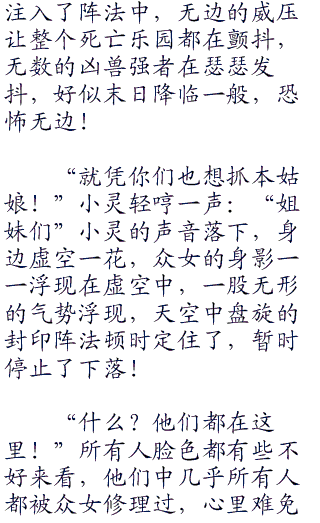 注入了阵法中，无边的威压
让整个死亡乐园都在颤抖，
无数的凶兽强者在瑟瑟发
抖，好似末日降临一般，恐
怖无边！
“就凭你们也想抓本姑
娘！”小灵轻哼一声：“姐
妹们”小灵的声音落下，身
边虚空一花，众女的身影一
一浮现在虚空中，一股无形
的气势浮现，天空中盘旋的
封印阵法顿时定住了，暂时
停止了下落！
“什么？他们都在这
里！”所有人脸色都有些不
好来看，他们中几乎所有人
都被众女修理过，心里难免